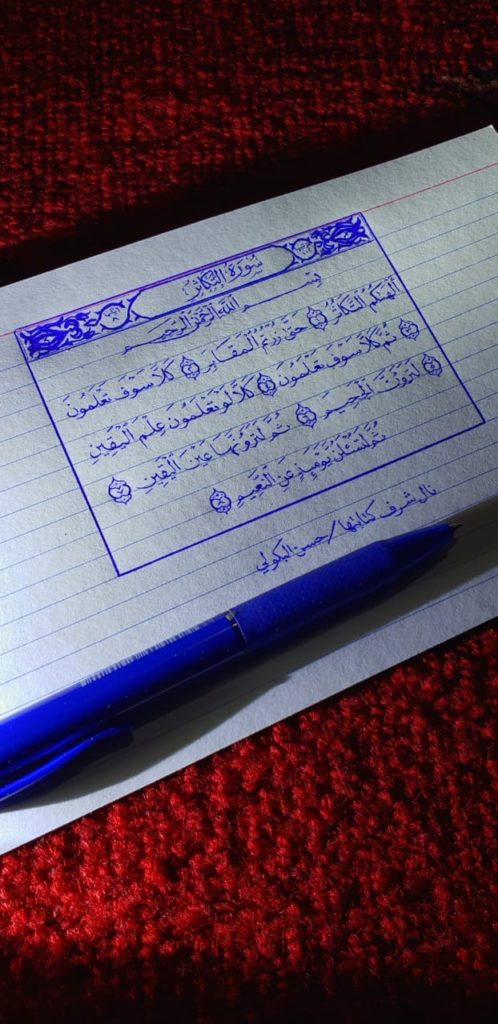 سُورَةُ التَّكَاثُرِ
بِسْمِ اللَّهِ الرَّحْمَٰنِ الرَّحِيمِ
أَلْهَىٰكُمُ ٱلتَّكَاثُرُ ١ حَتَّىٰ زُرْتُمُ ٱلْمَقَابِرَ ٢ كَلَّا سَوْفَ تَعْلَمُونَ
٣ ثُمَّ كَلَّا سَوْفَ تَعْلَمُونَ ٤ كَلَّا لَوْ تَعْلَمُونَ عِلْمَ ٱلْيَقِينِ
٥ لَتَرَوُنَّ ٱلْجَحِيمَ ٦ ثُمَّ لَتَرَوُنَّهَا عَيْنَ ٱلْيَقِينِ ٧
ثُمَّ لَتُسْـَٔلُنَّ يَوْمَئِذٍ عَنِ ٱلنَّعِيمِ ٨
نال شرف كتابتها / حسن البكولي